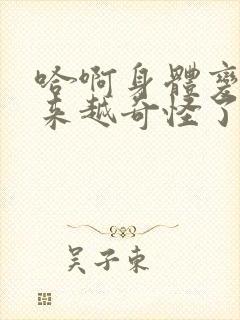 哈啊身體變
来越奇怪了
吴子東